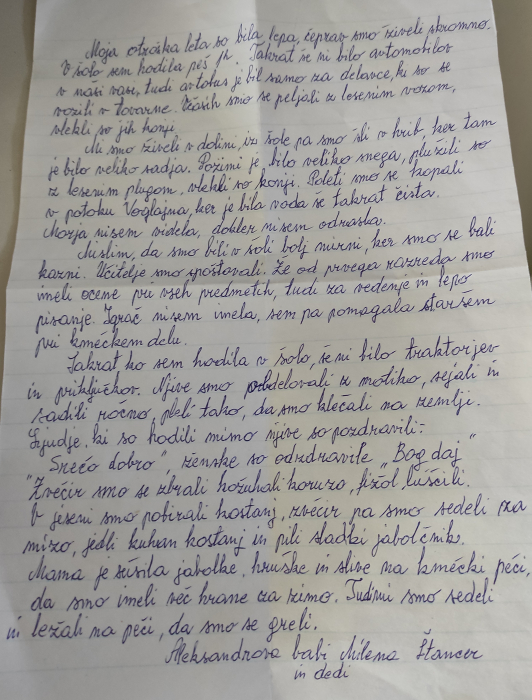 Moja otroška leta so bila lepa, čeprav smo živeli skromno.
V šolo sem hodila peš 1h. Takrat še ni bilo avtomobilov
v naši vasi, tudi avtobus je bil samo za delavce, ki so se
vozili v tovarne. Včasih smo se peljali z lesenim vozom,
vlekli so jih konji.
Mi smo živeli v dolini, iz šole pa smo šli v hrib, ker tam
je bilo veliko sadja. Pozimi je bilo veliko snega, plužili so
z lesenim plugom, vlekli so konji. Poleti smo se kopali
v potoku Voglajna, ker je bila voda še takrat čista.
Morja nisem videla, dokler nisem odrasla.
Mislim, da smo bili v šoli bolj mirni, ker smo se bali
kazni. Učitelje smo spoštovali. Že od prvega razreda smo
imeli ocene pri vseh predmetih, tudi za vedenje in lepo
pisanje. Igrač nisem imela, sem pa pomagala staršem
pri kmečkem delu.
Takrat ko sem hodila v šolo, še ni bilo traktorjev
in priključkov. Njive smo obdelovali z motiko, sejali in
sadili ročno, pleli tako, da smo klečali na zemlji.
Ljudje, ki so hodili mimo njive so pozdravili:
"Srečo dobro", ženske so odzdravile "Bog daj"
Zvečer smo se zbrali kožuhali koruzo, fižol luščili.
V jeseni smo pobirali kostanj, zvečer pa smo sedeli za
mizo, jedli kuhan kostanj in pili sladki jabolčnik.
Mama je sušila jabolke, hruške in slive na kmečki peči,
da smo imeli več hrane za zimo. Tudi mi smo sedeli
in ležali na peči, da smo se greli.
Aleksandrova babi Milena Štancer
in dedi